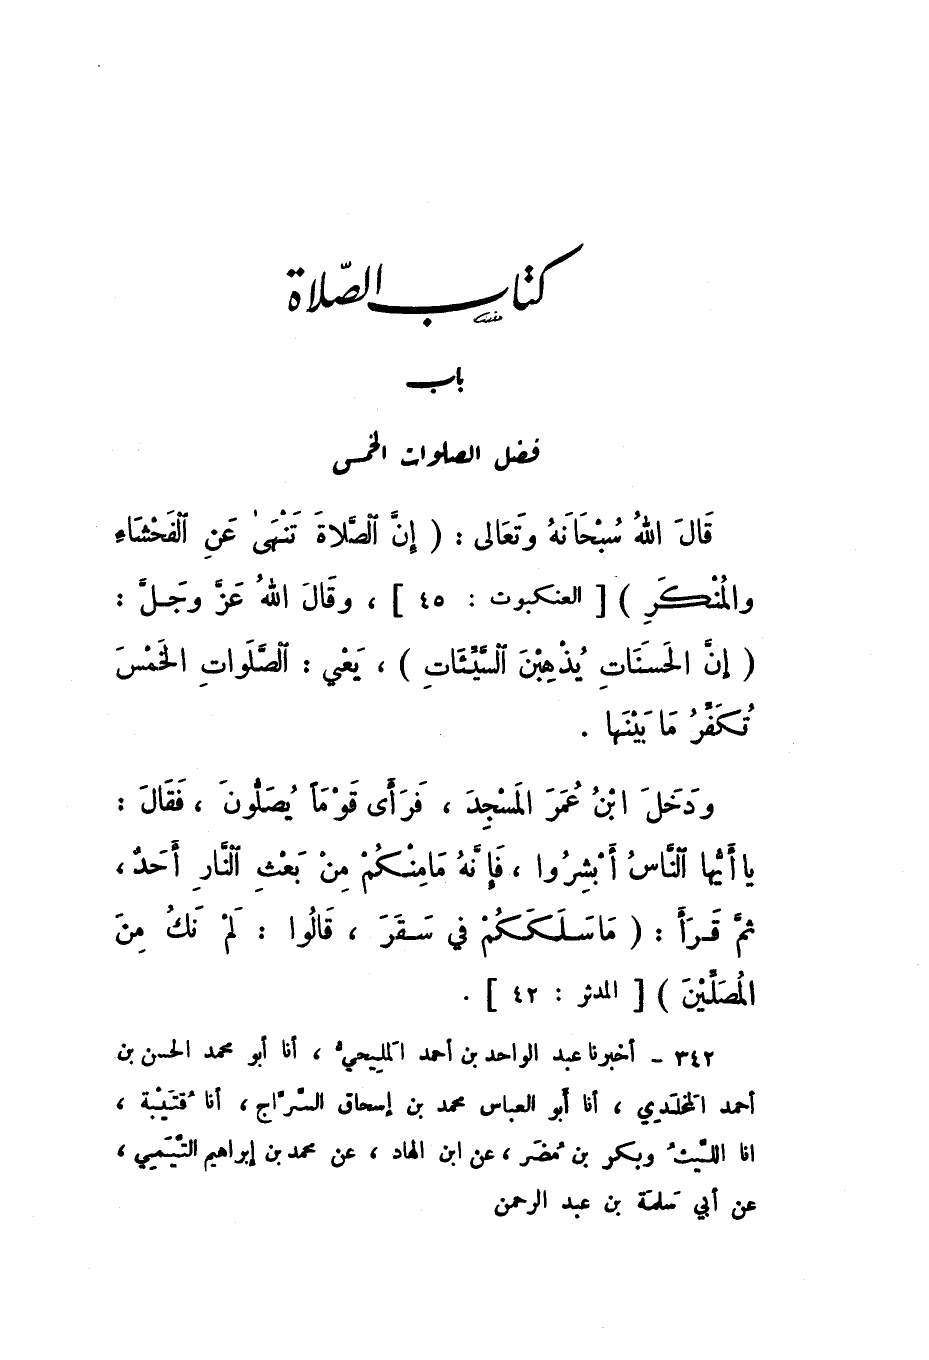 كتاب الصّلاة
باب
فضل الصلوات الخمس
قَالَ اللهُ سُبْحَانَهُ وتَعَالى : ( إِنَّ ٱلصَّلاةَ تَنْهَىٰ عَنِ ٱلْفَحْشَاءِ
والمُنْكَرِ ) [ العنكبوت : ٤٥ ] ، وقَالَ اللهُ عَزَّ وجَلَّ :
( إنَّ الحَسَنَاتِ يُذْهِبْنَ ٱلسَّيِّئَاتِ ) ، يَعْني : ٱلصَّلَواتِ الخَمْسَ
تُكَفِّرُ مَا بَيْنَها .
ودَخَلَ ابْنُ عُمَرَ المَسْجِدَ ، فَرَأَى قَوْمَاً يُصَلُّونَ ، فَقَالَ :
يا أَيُّها ٱلنَّاسُ أَبْشِرُوا ، فَإِنَّهُ مَامِنْكُمْ مِنْ بَعْثِ ٱلنَّارِ أَحَدٌ ،
ثمَّ قَرَأَ : ( مَاسَلَكَكُمْ في سَقَرَ ، قَالُوا : لَمْ نَكُ مِنَ
المُصَلِّيْنَ ) [ المدثر : ٤٢ ] .
٣٤٢ – أخبرنا عبد الواحد بن أحمد المَليحيُّ ، أنا أبو محمد الحسن بن
أحمد المَخلَدي ، أنا أبو العباس محمد بن إسحاق السَّرَّاج ، أنا قُتَيْبة ،
انا اللَّيثُ وبكر بن مُضَر ، عن ابن الهاد ، عن محمد بن إبراهيم التَّيْمي ،
عن أبي سَلمة بن عبد الرحمن